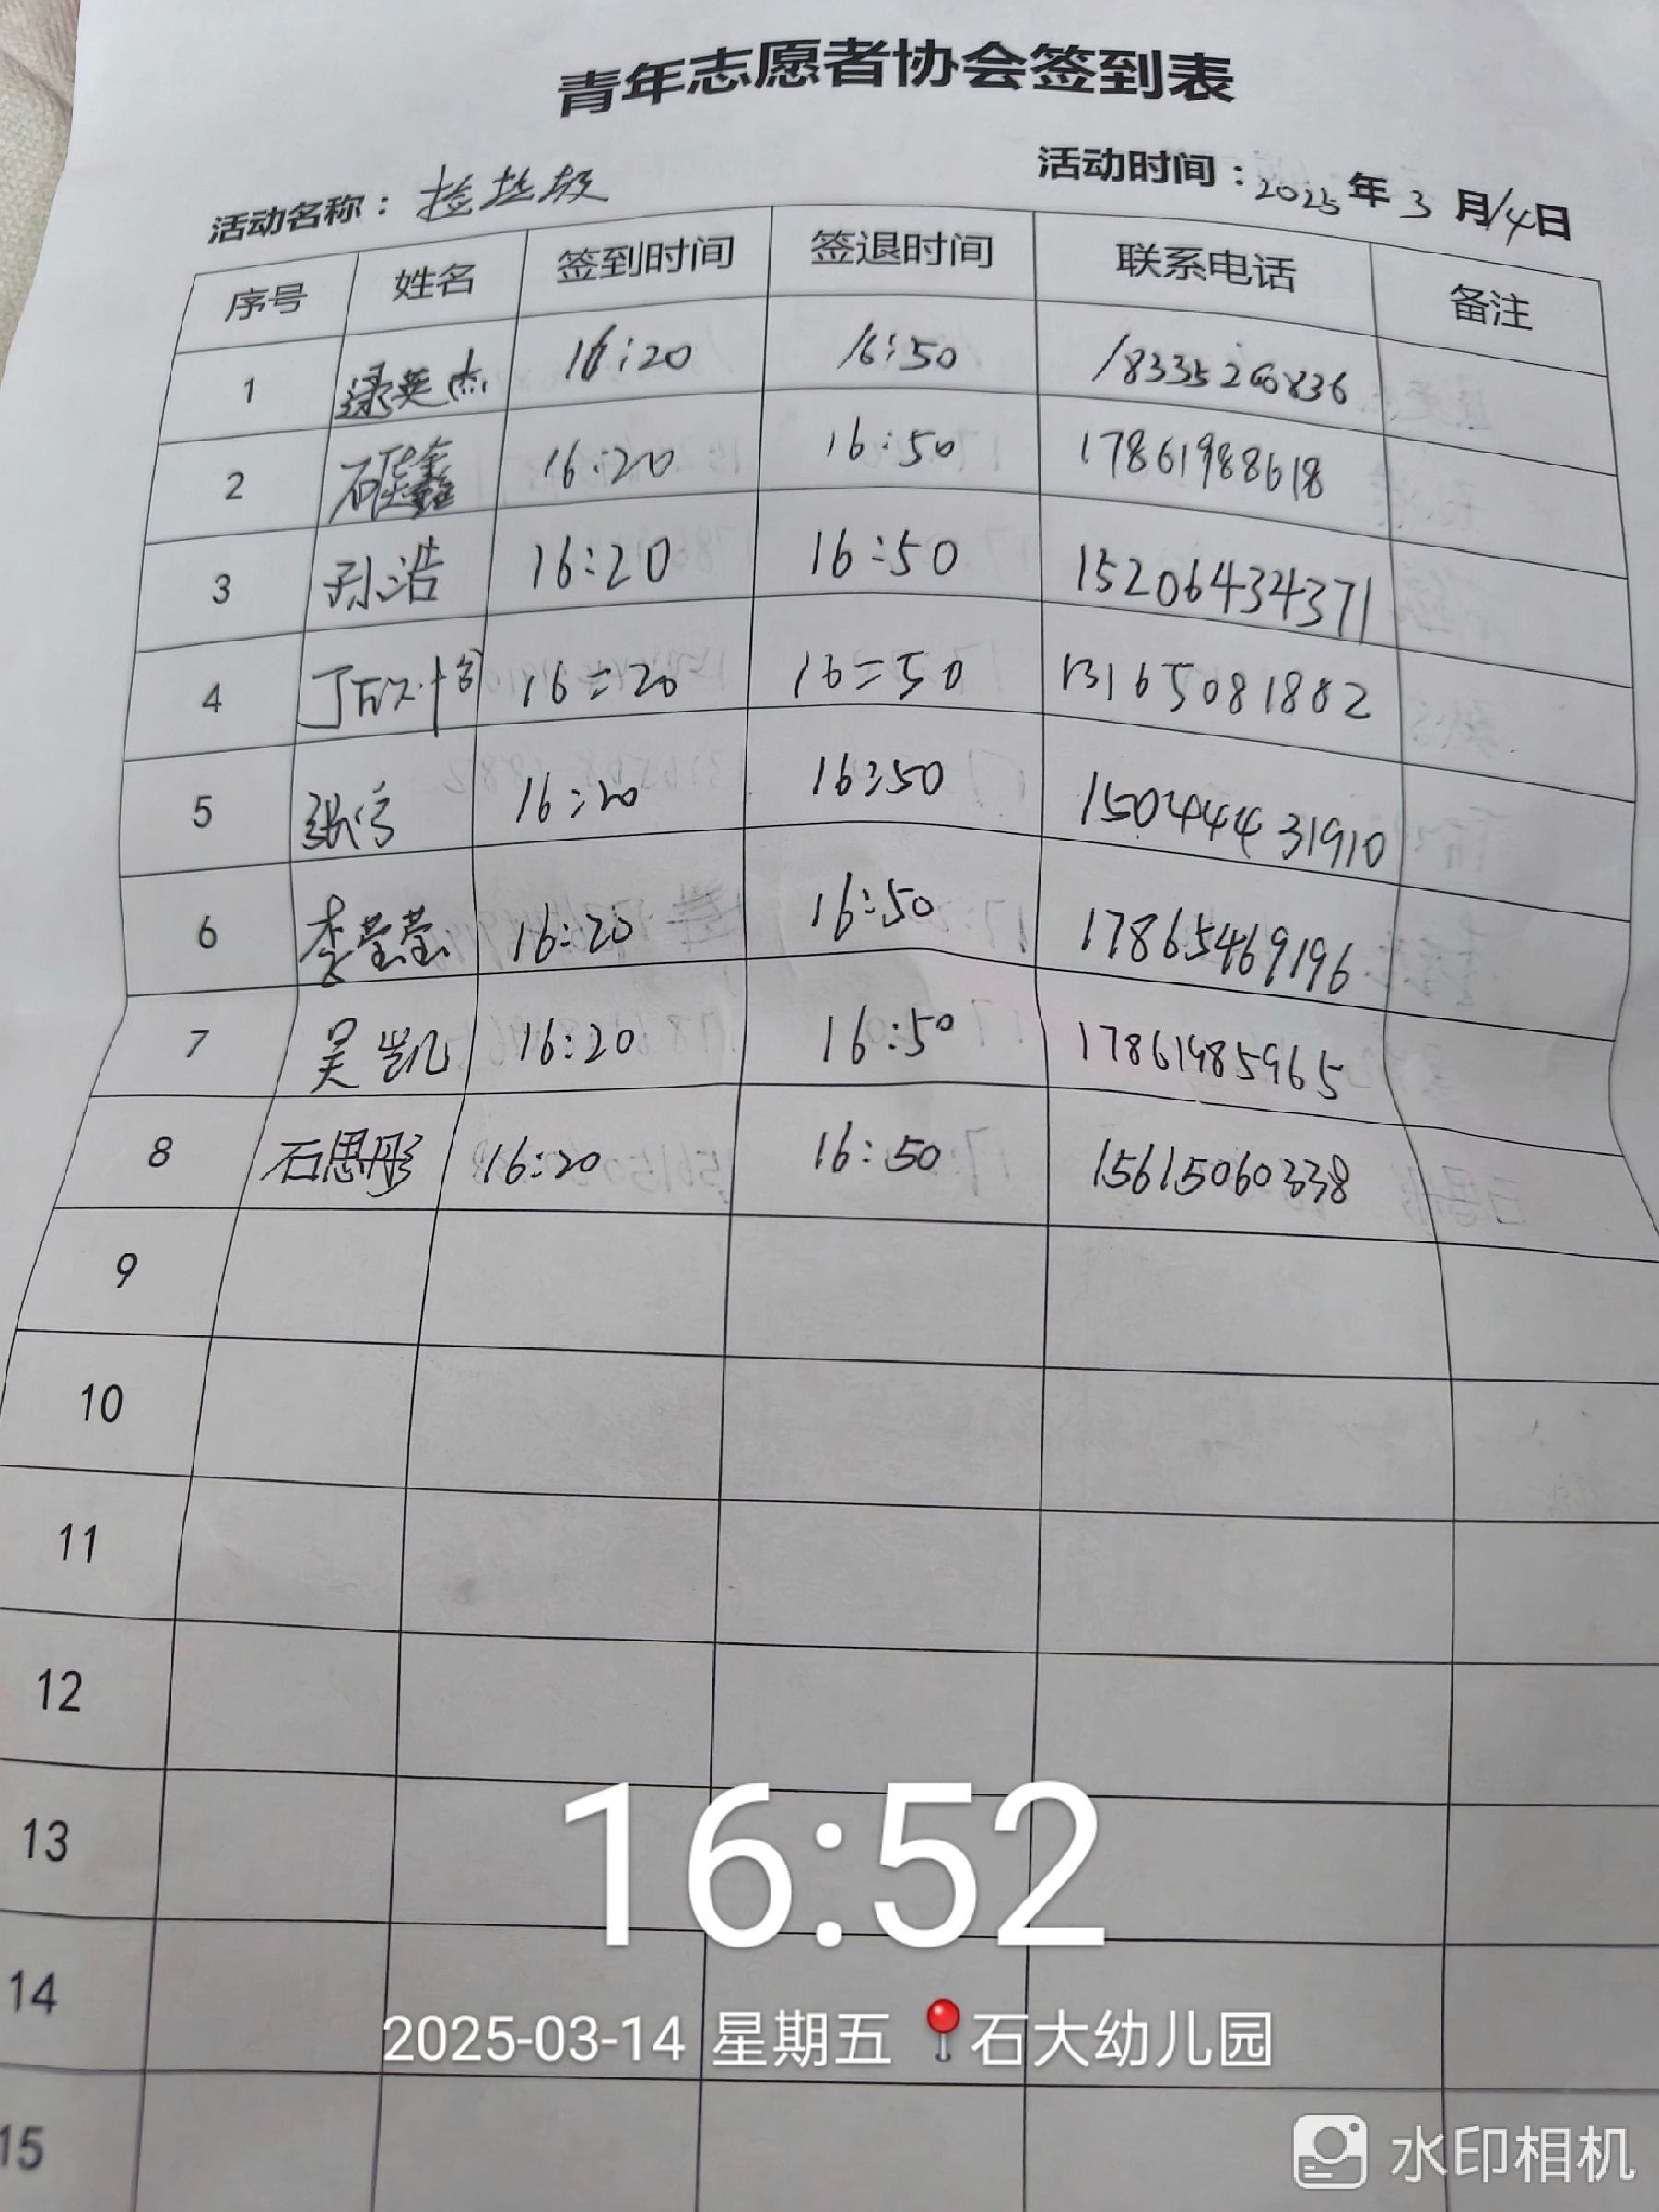 青年志愿者协会签到表
活动名称：捡垃圾 活动时间：2025年3月14日
序号 姓名 签到时间 签退时间 联系电话 备注
1 英杰 16:20 16:50 18335260836
2 鑫 16:20 16:50 17861988618
3 孙浩 16:20 16:50 15206434371
4 丁 16:20 16:50 13165081882
5 16:20 16:50 150444431910
6 李莹莹 16:20 16:50 17865469196
7 吴凯 16:20 16:50 17861985965
8 石思彤 16:20 16:50 15615060338
9
10
11
12
13
14
15
16:52
2025-03-14 星期五 石大幼儿园
水印相机